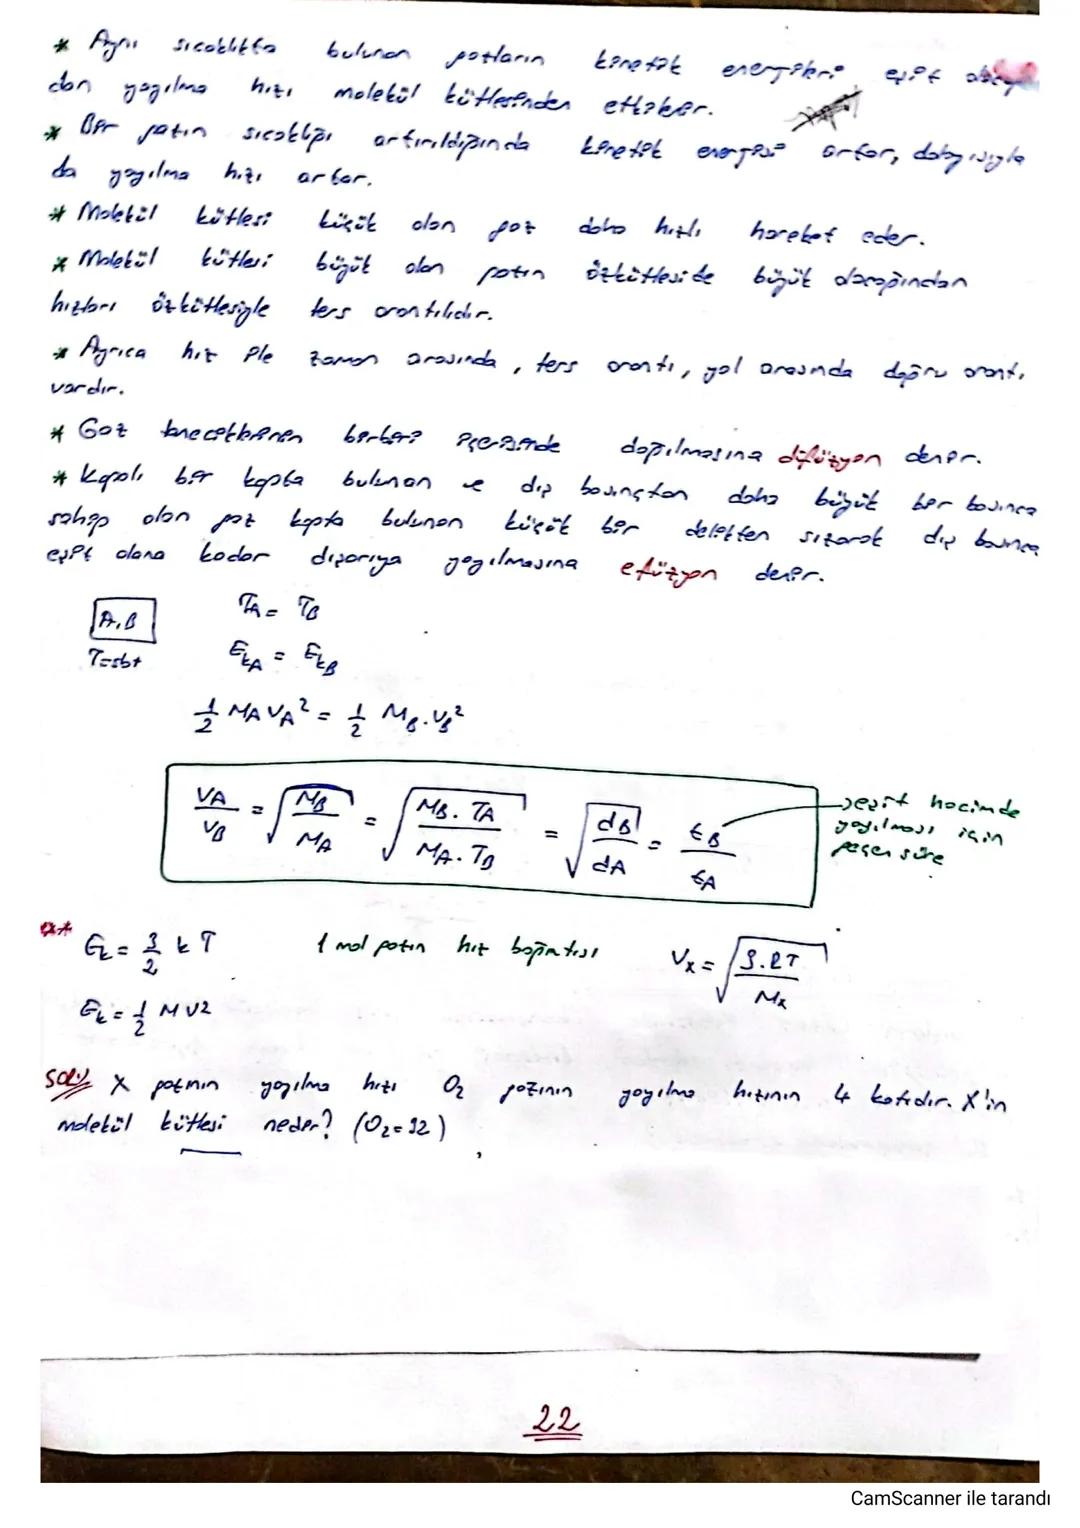 * Aynı sıcaklıkta bulunan gazların kinetik enerjileri eşit
dan yayılma hızı molekül kütlesinden etkilenir.
* Bir gazın sıcaklığı artırıldığında kinetik enerjisi artar, dolayısıyla
da yayılma hızı artar.
* Molekül kütlesi küçük olan gaz daha hızlı hareket eder.
* Molekül kütlesi büyük olan gazın özkütleside büyük olacağından
hızları özkütlesiyle ters orantılıdır.
* Ayrıca hız ile zaman arasında, ters orantı, yol arasında doğru orantı
vardır.
* Gaz taneciklerinin birbiri içerisinde dağılmasına difüzyon denir.
* Kapalı bir kapta bulunan ve dış basınçtan daha büyük bir basınca
sahip olan gaz kapta bulunan küçük bir delikten sızarak dış basınca
eşit olana kadar dışarıya yayılmasına efüzyon denir.
A,B TA = TB
T=sbt EkA = EkB
1/2 MA VA² = 1/2 MB . VB²
VA/VB = √(MB/MA) = √(MB . TA / MA . TB) = √(dB/dA) = tB/tA → eşit hacimde
yayılması için
geçen süre
** Ek = 3/2 k T 1 mol gazın hız bağıntısı Vx = √(3.RT / Mx)
Ek = 1/2 M V2
Soru X gazının yayılma hızı O2 gazının yayılma hızının 4 katıdır. X'in
molekül kütlesi nedir? (O2=32)
22
CamScanner ile tarandı